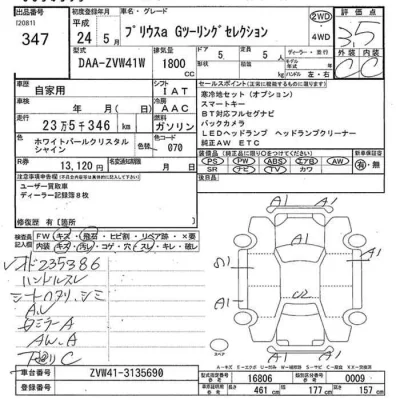 出品番号
[2081]
347
初度登録年月
平成
24年 5月
車名・グレード
プリウスα Gツーリングセレクション
2WD
4WD
評価点
3.5
外装 内装
C C
型式
DAA-ZVW41W
排気量
1800
CC
ドア
5
定員
5
ディーラー・並行
ハンドル 左・右
車歴
自家用
車検
年 月
走行
23万5千346
外色
ホワイトパールクリスタル
シャイン
シフト
IAT
冷房
AAC
燃料
ガソリン
色替
色No.
070
セールスポイント(正常に機能するものに限ります)
寒冷地セット(オプション)
スマートキー
BT対応フルセグナビ
バックカメラ
LEDヘッドランプ ヘッドランプクリーナー
純正AW ETC
リ預
13,120円
名変期限
月 日
装備品
PS PW ABS エアB AW
SR ナビ TV カワ
新車保証書
有・無
注意事項
ユーザー買取車
ディーラー記録簿8枚
修復歴 有 [箇所
検査員
記入欄
FW キズ・飛石・ヒビ割・リペア跡・×要
内装 キズ・汚レ・コゲ・穴・スレ・キレ・破レ
235386
ハンドルスレ
シートヘタリ、シミ
Aル
Aw. A
下廻りC
A1 A1
A1
U2
A1
A1 A1
スペア
車台番号
ZVW41-3135690
登録番号
型式指定番号
16806
類別区分番号
0009
長さ
461
cm
幅
177
cm
高さ
157
cm